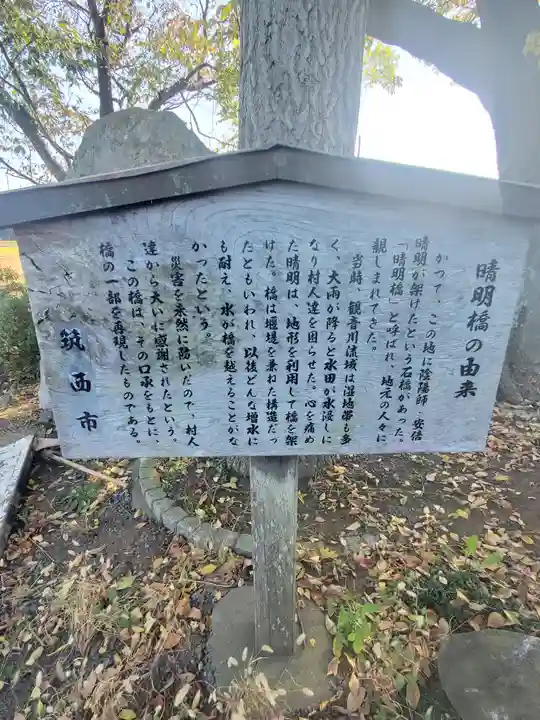 晴明橋の由来
かつて、この地に陰陽師、安倍
晴明が架けたという石橋があった。
「晴明橋」と呼ばれ、地元の人々に
親しまれてきた。
当時、観音川流域は湿地帯も多
く、大雨が降ると水田が水浸しに
なり村人達を困らせた。心を痛め
た晴明は、地形を利用して橋を架
けた。橋は堰堤を兼ねた構造だっ
たともいわれ、以後どんな増水に
も耐え、水が橋を越えることがな
かったという。
災害を未然に防いだので、村人
達から大いに感謝されたという。
この橋は、その口承をもとに、
橋の一部を再現したものである。
筑西市